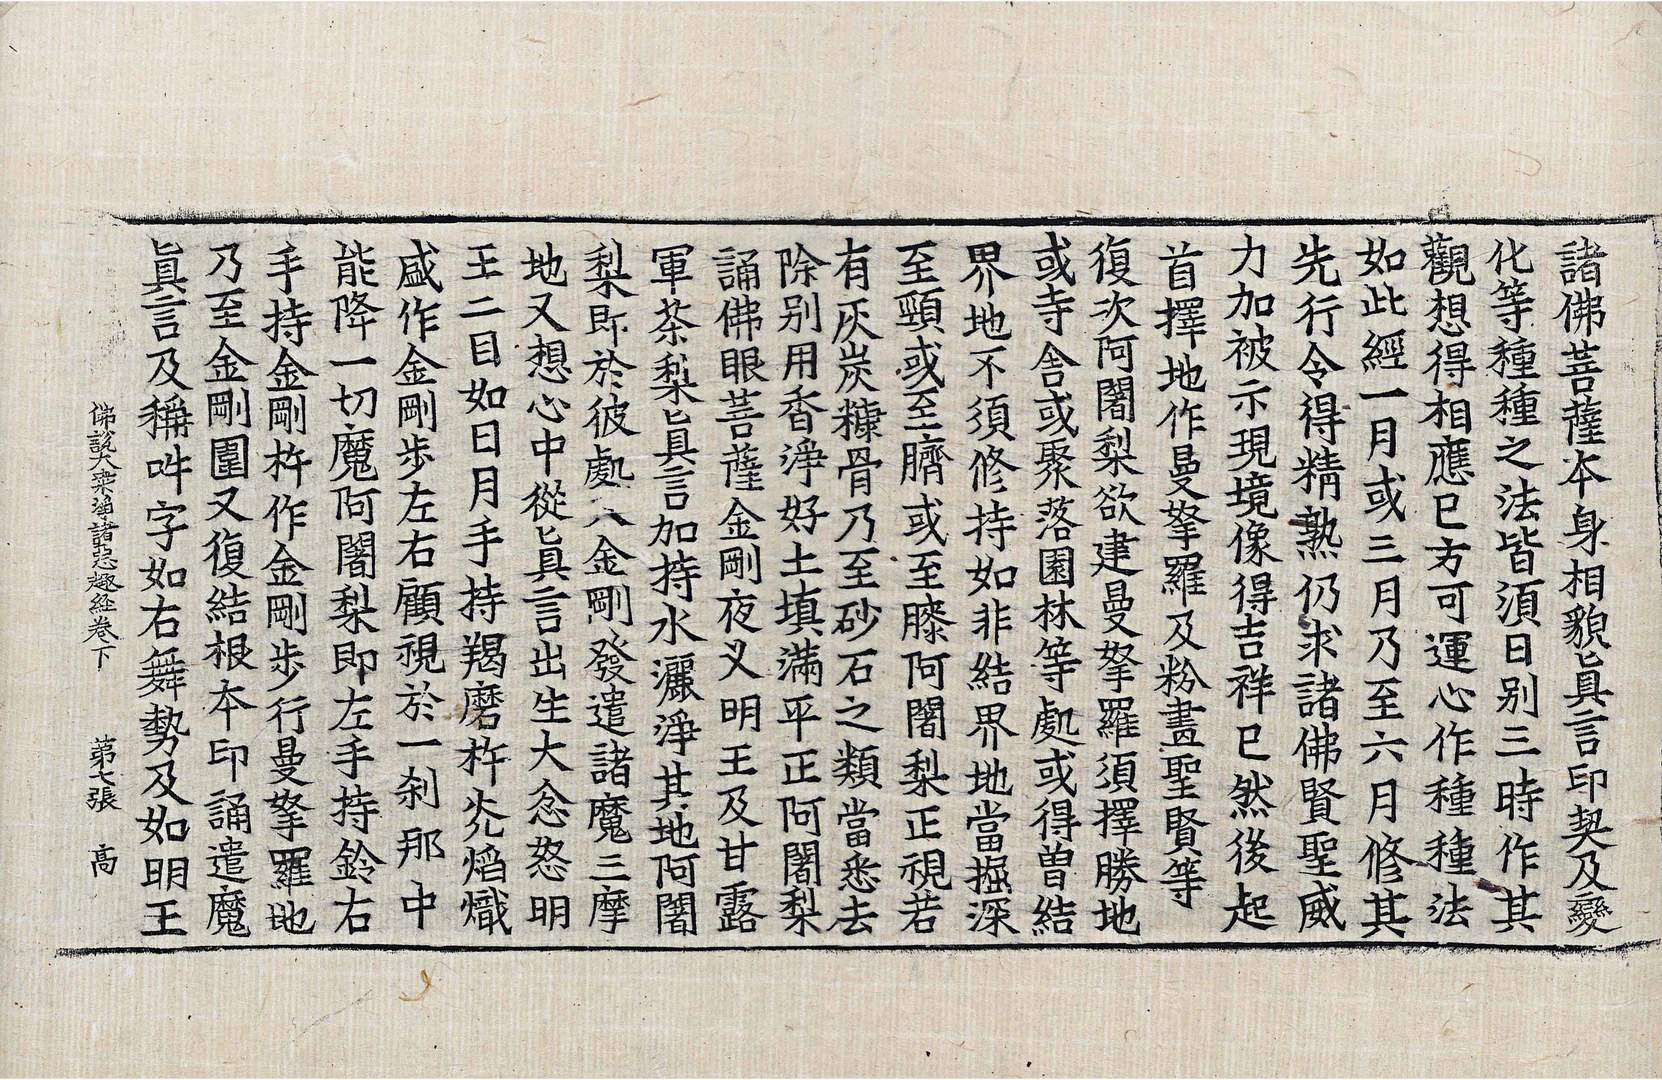 諸佛菩薩本身相貌眞言印契及變
化等種種之法皆須日別三時作其
觀想得相應已方可運心作種種法
如此經一月或三月乃至六月修其
先行令得精熟仍求諸佛賢聖威
力加被示現境像得吉祥已然後起
首擇地作曼拏羅及粉畫聖賢等
復次阿闍梨欲建曼拏羅須擇勝地
或寺舍或聚落園林等處或得曾結
界地不須修持如非結界地當掘深
至頸或至臍或至膝阿闍梨正視若
有灰炭糠骨乃至砂石之類當悉去
除別用香淨好土填滿平正阿闍梨
誦佛眼菩薩金剛夜叉明王及甘露
軍荼梨眞言加持水灑淨其地阿闍
梨即於彼處六金剛發遣諸魔三摩
地又想心中從眞言出生大忿怒明
王二目如日月手持羯磨杵光焰熾
盛作金剛步左右顧視於一刹那中
能降一切魔阿闍梨即左手持鈴右
手持金剛杵作金剛步行曼拏羅地
乃至金剛圍又復結根本印誦遣魔
眞言及稱吽字如右舞勢及如明王
佛說大乘 諸惡趣経卷下 第七張 高